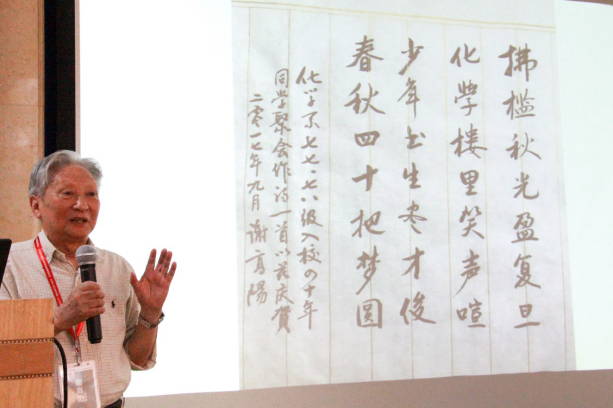 拂槛秋光盈复旦
化学楼里笑声喧
少年书生尽才俊
春秋四十把梦圆
化学系七七、七八级入校四十年
同学聚会作诗一首以表庆贺
二零一七年九月 谢高阳